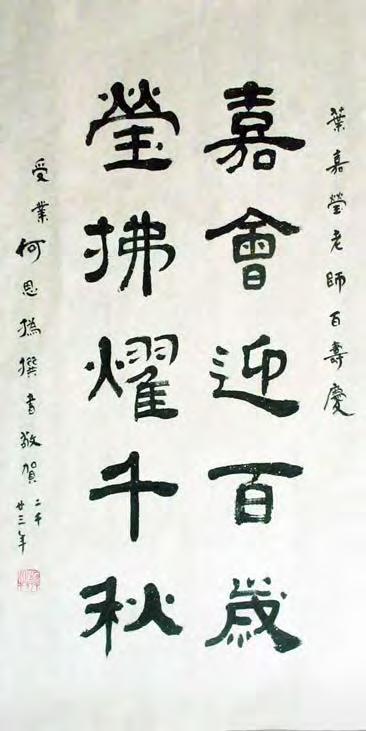 葉嘉瑩老師百壽慶
嘉會迎百歲
瑩拂耀千秋
受業何恩撝撰書敬賀
二千廿三年